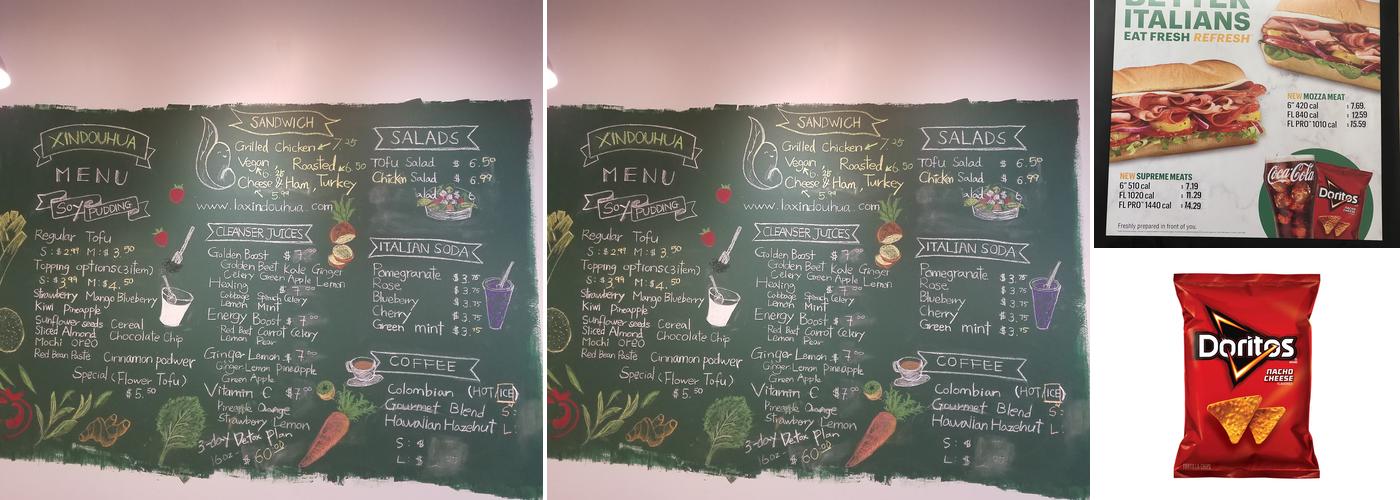 XINDOUHUA
MENU
Soye PUDDING
Regular Tofu
S: $2.99 M: $3.50
Topping options(3item)
S: $3.99 M: $4.50
Strawberry Mango Blueberry
Kiwi Pineapple
Sunflower seeds Cereal
Sliced Almond Chocolate Chip
Mochi Oreo
Red Bean Paste Cinnamon podwer
Special (Flower Tofu)
$5.50
SANDWICH
Grilled Chicken 7.25
Vegan 6.25 Roasted 6.50
Cheese & Ham, Turkey
5.99
www.laxindouhua.com
CLEANSER JUICES
Golden Boost $7.00
Golden Beet Kale Ginger
Celery Green Apple Lemon
Healing $7.00
Cabbage Spinach Celery
Lemon Mint
Energy Boost $7.00
Red Beet Carrot Celery
Lemon Pear
Ginger Lemon $7.00
Ginger Lemon Pineapple
Green Apple
Vitamin C $7.00
Pineapple Orange
Strawberry Lemon
3-day Detox Plan
16oz $60.00
SALADS
Tofu Salad $6.50
Chicken Salad $6.99
Salad
ITALIAN SODA
Pomegranate $3.75
Rose $3.75
Blueberry $3.75
Cherry $3.75
Green mint $3.75
COFFEE
Colombian (HOT/ICE)
Gourmet Blend S:
Hawaiian Hazelnut L:
S: $
L: $
XINDOUHUA
MENU
Soye PUDDING
Regular Tofu
S: $2.99 M: $3.50
Topping options(3item)
S: $3.99 M: $4.50
Strawberry Mango Blueberry
Kiwi Pineapple
Sunflower seeds Cereal
Sliced Almond Chocolate Chip
Mochi Oreo
Red Bean Paste Cinnamon podwer
Special (Flower Tofu)
$5.50
SANDWICH
Grilled Chicken 7.25
Vegan 6.25 Roasted 6.50
Cheese & Ham, Turkey
5.99
www.laxindouhua.com
CLEANSER JUICES
Golden Boost $7.00
Golden Beet Kale Ginger
Celery Green Apple Lemon
Healing $7.00
Cabbage Spinach Celery
Lemon Mint
Energy Boost $7.00
Red Beet Carrot Celery
Lemon Pear
Ginger Lemon $7.00
Ginger Lemon Pineapple
Green Apple
Vitamin C $7.00
Pineapple Orange
Strawberry Lemon
3-day Detox Plan
16oz $60.00
SALADS
Tofu Salad $6.50
Chicken Salad $6.99
Salad
ITALIAN SODA
Pomegranate $3.75
Rose $3.75
Blueberry $3.75
Cherry $3.75
Green mint $3.75
COFFEE
Colombian (HOT/ICE)
Gourmet Blend S:
Hawaiian Hazelnut L:
S: $
L: $
BETTER
ITALIANS
EAT FRESH REFRESH
NEW MOZZA MEAT
6" 420 cal 7.69
FL 840 cal 12.59
FL PRO 1010 cal 15.59
NEW SUPREME MEATS
6" 510 cal 7.19
FL 1020 cal 11.29
FL PRO 1440 cal 14.29
Coca-Cola
Doritos
Freshly prepared in front of you.
Doritos
NACHO
CHEESE
TORTILLA CHIPS